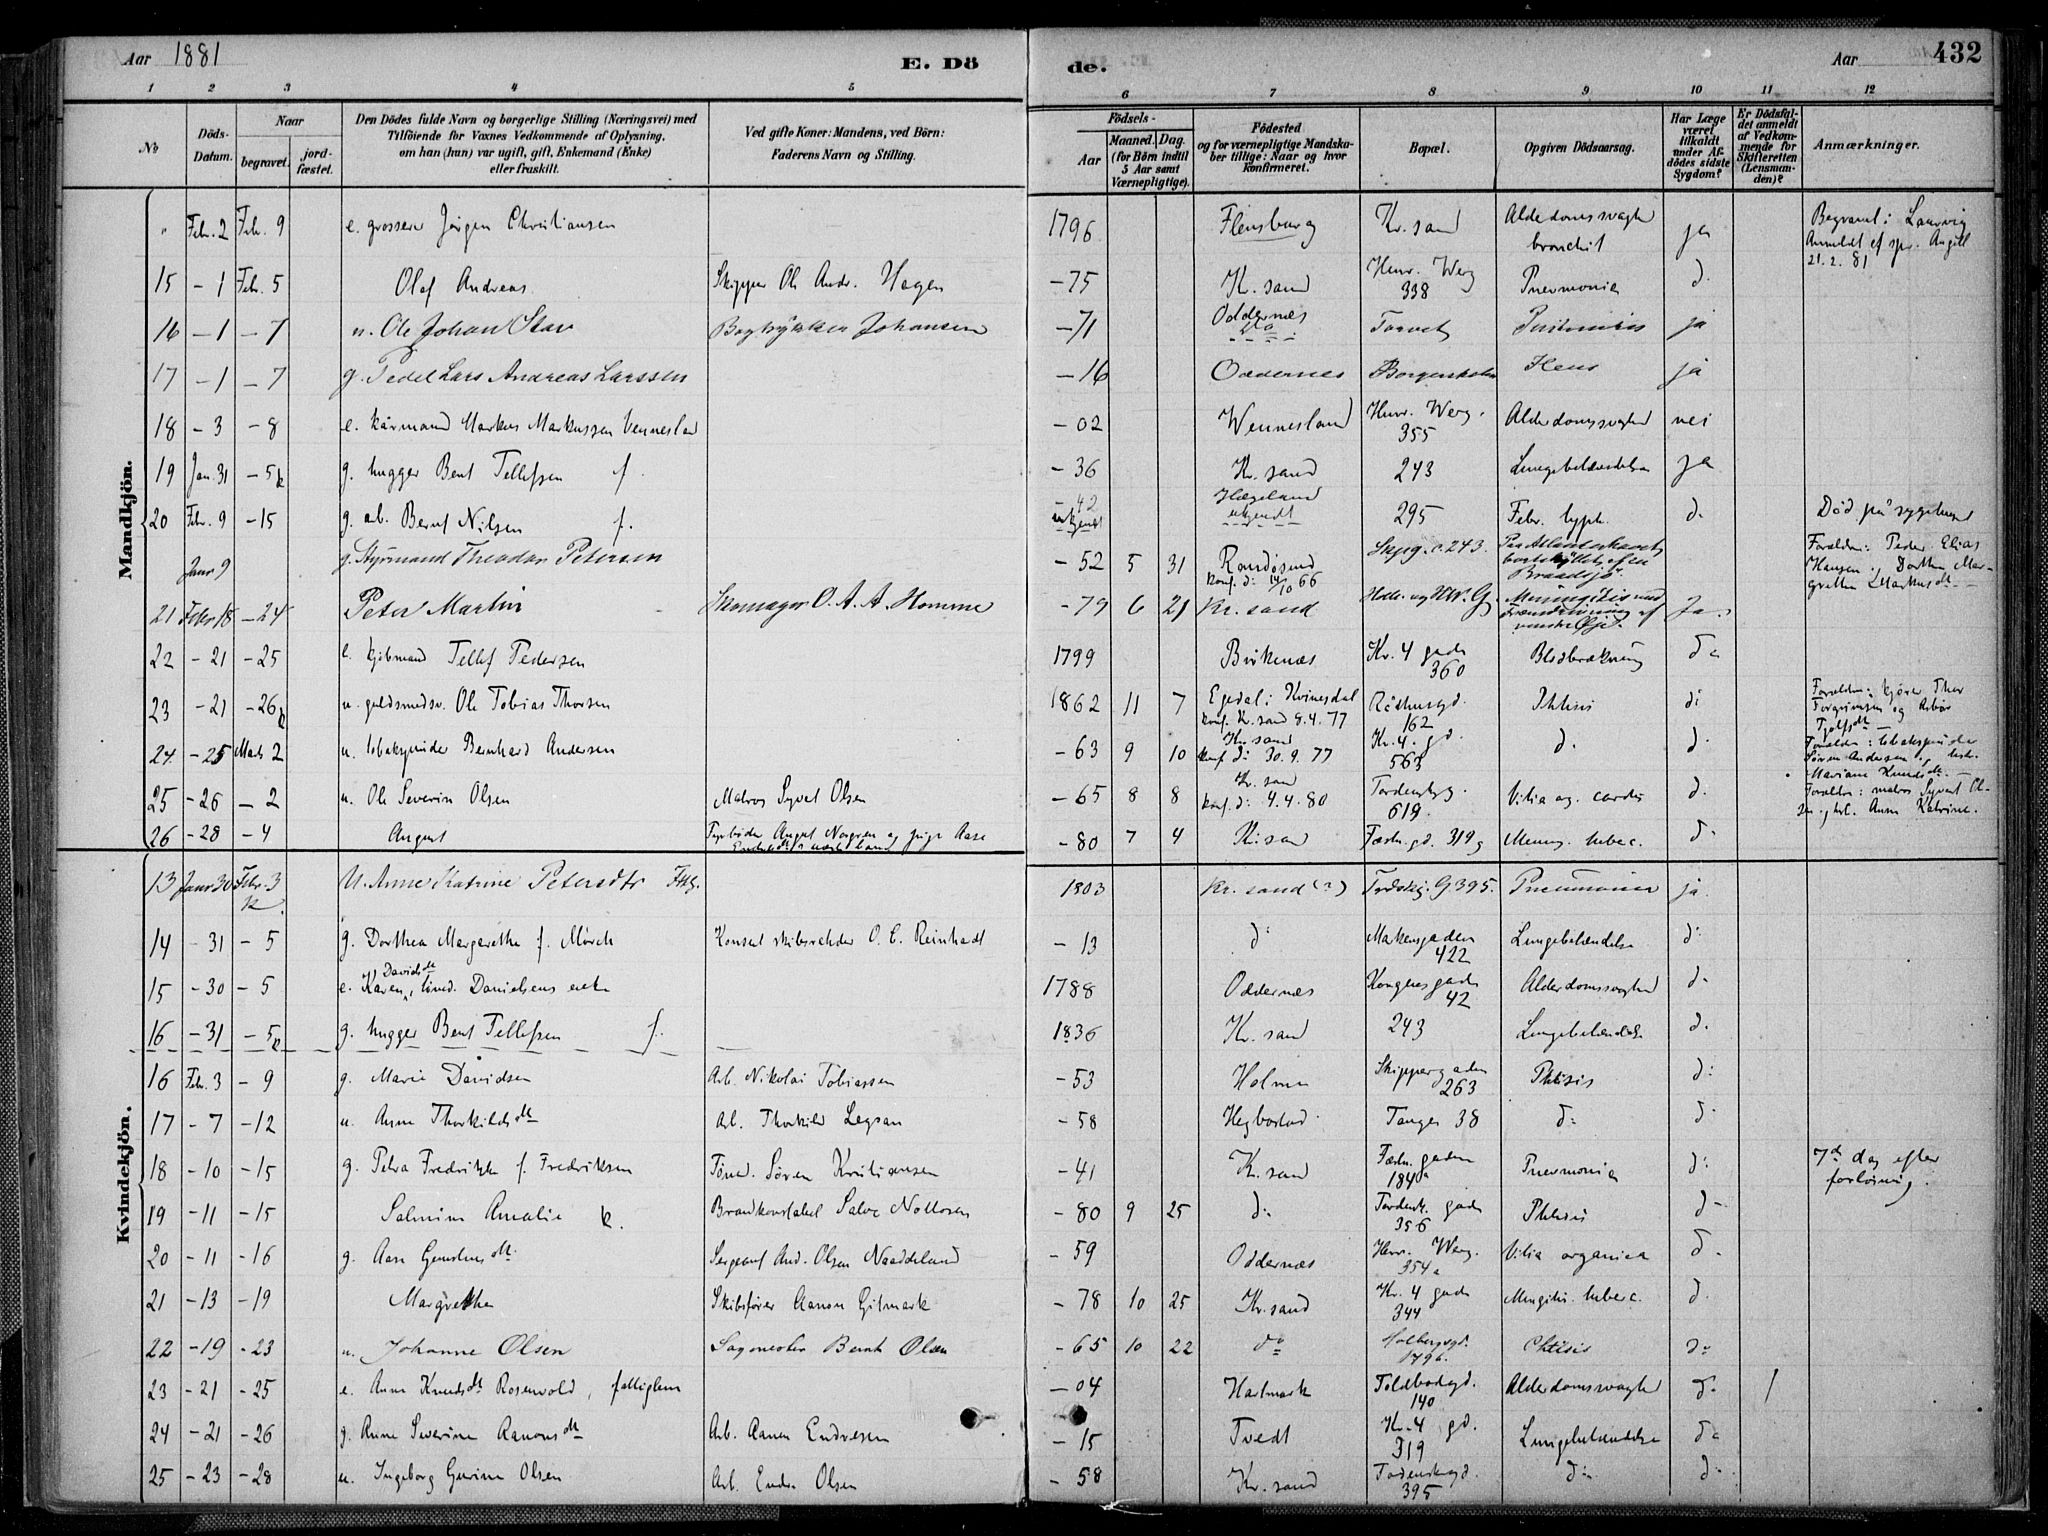 Aar 1881 E. Dö de. Aar 432
1 2 3 4 5 6 7 8 9 10 11 12
No Döds-Datum. Naar begravet. jord-fæstet. Den Dödes fulde Navn og borgerlige Stilling (Næringsvei) med Tilföiende for Voxnes Vedkommende af Oplysning, om han (hun) var ugift, gift, Enkemand (Enke) eller fraskilt. Ved gifte Koner: Mandens, ved Börn: Faderens Navn og Stilling. Födsels- Aar Maaned. Dag. (for Börn indtil 5 Aar samt Værnepligtige). Födested og for værnepligtige Mandskaber tillige: Naar og hvor konfirmeret. Bopæl. Opgiven Dödsaarsag. Har Læge været tilkaldt under Afdödes sidste Sygdom? Er Dödsfaldet anmeldt af Vedkommende for Skifteretten (Lensmanden)? Anmærkninger.
Mandkjön.
" Febr. 2 Febr. 9 e. grosserer Jørgen Christiansen 1796 Flensburg Kr.sand Alderdomssvaghed bronchit ja Begravet i Laurvig Anmeldt af spr. Angell 21.2.81
15 - 1 Febr. 5 Olaf Andreas Skipper Ole Andr. Hagen - 75 Kr.sand Henr. Werg 338 Pneumonia d.
16 - 1 - 7 u. Ole Johan Stav Bogtrykker Johansen - 71 Oddernæs Torvet ja
17 - 1 - 7 g. Pedel Lars Andreas Larssen - 16 Oddernes Ileus ja
18 - 3 - 8 e. Markus Markussen Vennesland - 02 Wennesland Henr. Werg. 355 Alderdomssvaghed nei
19 Jan. 31 - 5 k g. hugger Bent Tellefsen f. - 36 Kr.sand 243 Lungebetændelse ja
20 Febr. 9 - 15 g. arb. Bernt Nilsen f. - 42 ukjendt Hægeland ukjendt 295 Febr. typh. d. Død på sygehuset
Janr 9 g. Styrmand Theodor Petersen - 52 5 31 Randøsund konf. d: 14/10 66 Skipg. c. 243. Paa Atlanterhavet bortskyllet af en Braadsjø. Forældre: Peder Elias Hansen, Dorthea Margrethe Markusdtr
21 Febr 18 - 24 Peter Martin Skomager O. A. A. Homme - 79 6 21 Kr.sand Meningitis Ja
22 - 21 - 25 e. kjøbmand Tellef Pedersen 1799 Birkenæs Kr. 4 gade 360 Blodbrækning do
23 - 21 - 26 k u. guldsmedsv. Ole Tobias Thorsen 1862 11 7 Egedal i Kvinesdal konf. Kr.sand 8.4.77 Rådhusgd. 162 Phtisis d: Forældre: kjører Thor Torgrimsen og
24 - 25 Marts 2 u. tobakspinder Bernhard Andersen - 63 9 10 Kr.sand konf. d: 30.9.77 Kr. 4. gd. 563 d. d. Forældre: tobakspinder Søren Andersen og Mariane Knudsdtr.
25 - 26 - 2 u. Ole Severin Olsen Matros Syvert Olsen - 65 8 8 Kr.sand konf. d: 4.4.80 Tordenskg. 619. Vitia og. cordis d. Forældre: matros Syvert Olsen, Anne Katrine.
26 - 28 - 4 August Fyrbøder August Norgren og pige Aase - 80 7 4 Kr.sand Fæstn.gd. 319 g Mening. tuberc. d.
Kvindekjön.
13 Janr 30 Febr. 3 k. U. Anne Katrine Petersdtr Fttg. 1803 Kr.sand (?) Tordskj. G 395. Pneumonia ja
14 - 31 - 5 g. Dorthea Margarethe f. Mörch Konsul skibsreder O. C. Reinhardt - 13 d: Markensgaden 422 Lungebetændelse d:
15 - 30 - 5 e. Karen Davidsdtr, tømd. Danielsens enke 1788 Oddernæs Kongensgade 42 Alderdomssvaghed d.
16 - 31 - 5 k g. hugger Bent Tellefsen f. 1836 Kr.sand 243 Lungebetændelse d.
16 Febr. 3 - 9 g. Marie Davidsen Arb. Nikolai Tobiassen - 53 Holme Skippergaden 263 Phtisis d:
17 - 7 - 12 u. Anne Thorkildsdtr Arb. Thorkild - 58 Hegbostad Tangen 38 d: d.
18 - 10 - 15 g. Petra Fredrikke f. Fredriksen Tømd. Søren Kristiansen - 41 Kr.sand Fæstn. gaden 184 a Pneumonia d: 7de dag efter forløsning.
19 - 11 - 15 Salmine Amalie k. Brandkonstabel Salve - 80 9 25 d: Tordensk. gade 356 Phtisis d -
20 - 11 - 16 g. Aase Arb. Sergeant And. Olsen Naaddeland - 59 Oddernæs Henr. Werg. 354 a Vitia organica d.
21 - 13 - 19 Margrethe Skibsfører Aanon Gitmark - 78 10 25 Kr.sand Kr. 4 gade 344 Mengitis. tuberc. d.
22 - 19 - 23 u. Johanne Olsen Sagmester Bernt Olsen - 65 10 22 do Holbergsgd. 179 b. Phtisis d:
23 - 21 - 25 e. Anne Knudsdtr Rosenvold, fattiglem - 04 Hartmark Toldbodgd. 140 Alderdomssvaghed d. /
24 - 21 - 26 g. Anne Severine Aanonsdtr Arb. Aanen Endresen - 15 Tvedt Kr. 4 gd. 319 Lungebetændelse do
25 - 23 - 28 u. Ingeborg Gurine Olsen Arb. Endre Olsen - 58 Kr.sand Tordenskgd. 395 d: d: